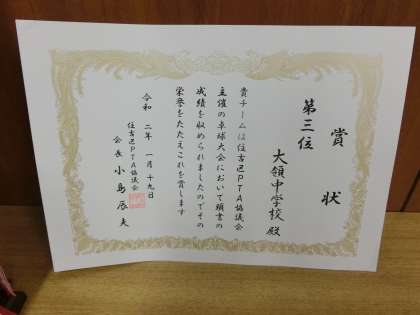 賞状
第三位
大領中学校殿
貴チームは住吉区PTA協議会
主催の卓球大会において頭書の
成績を収められましたのでその
栄誉をたたえこれを賞します
令和二年一月十九日
住吉区PTA協議会
会長 小島辰夫